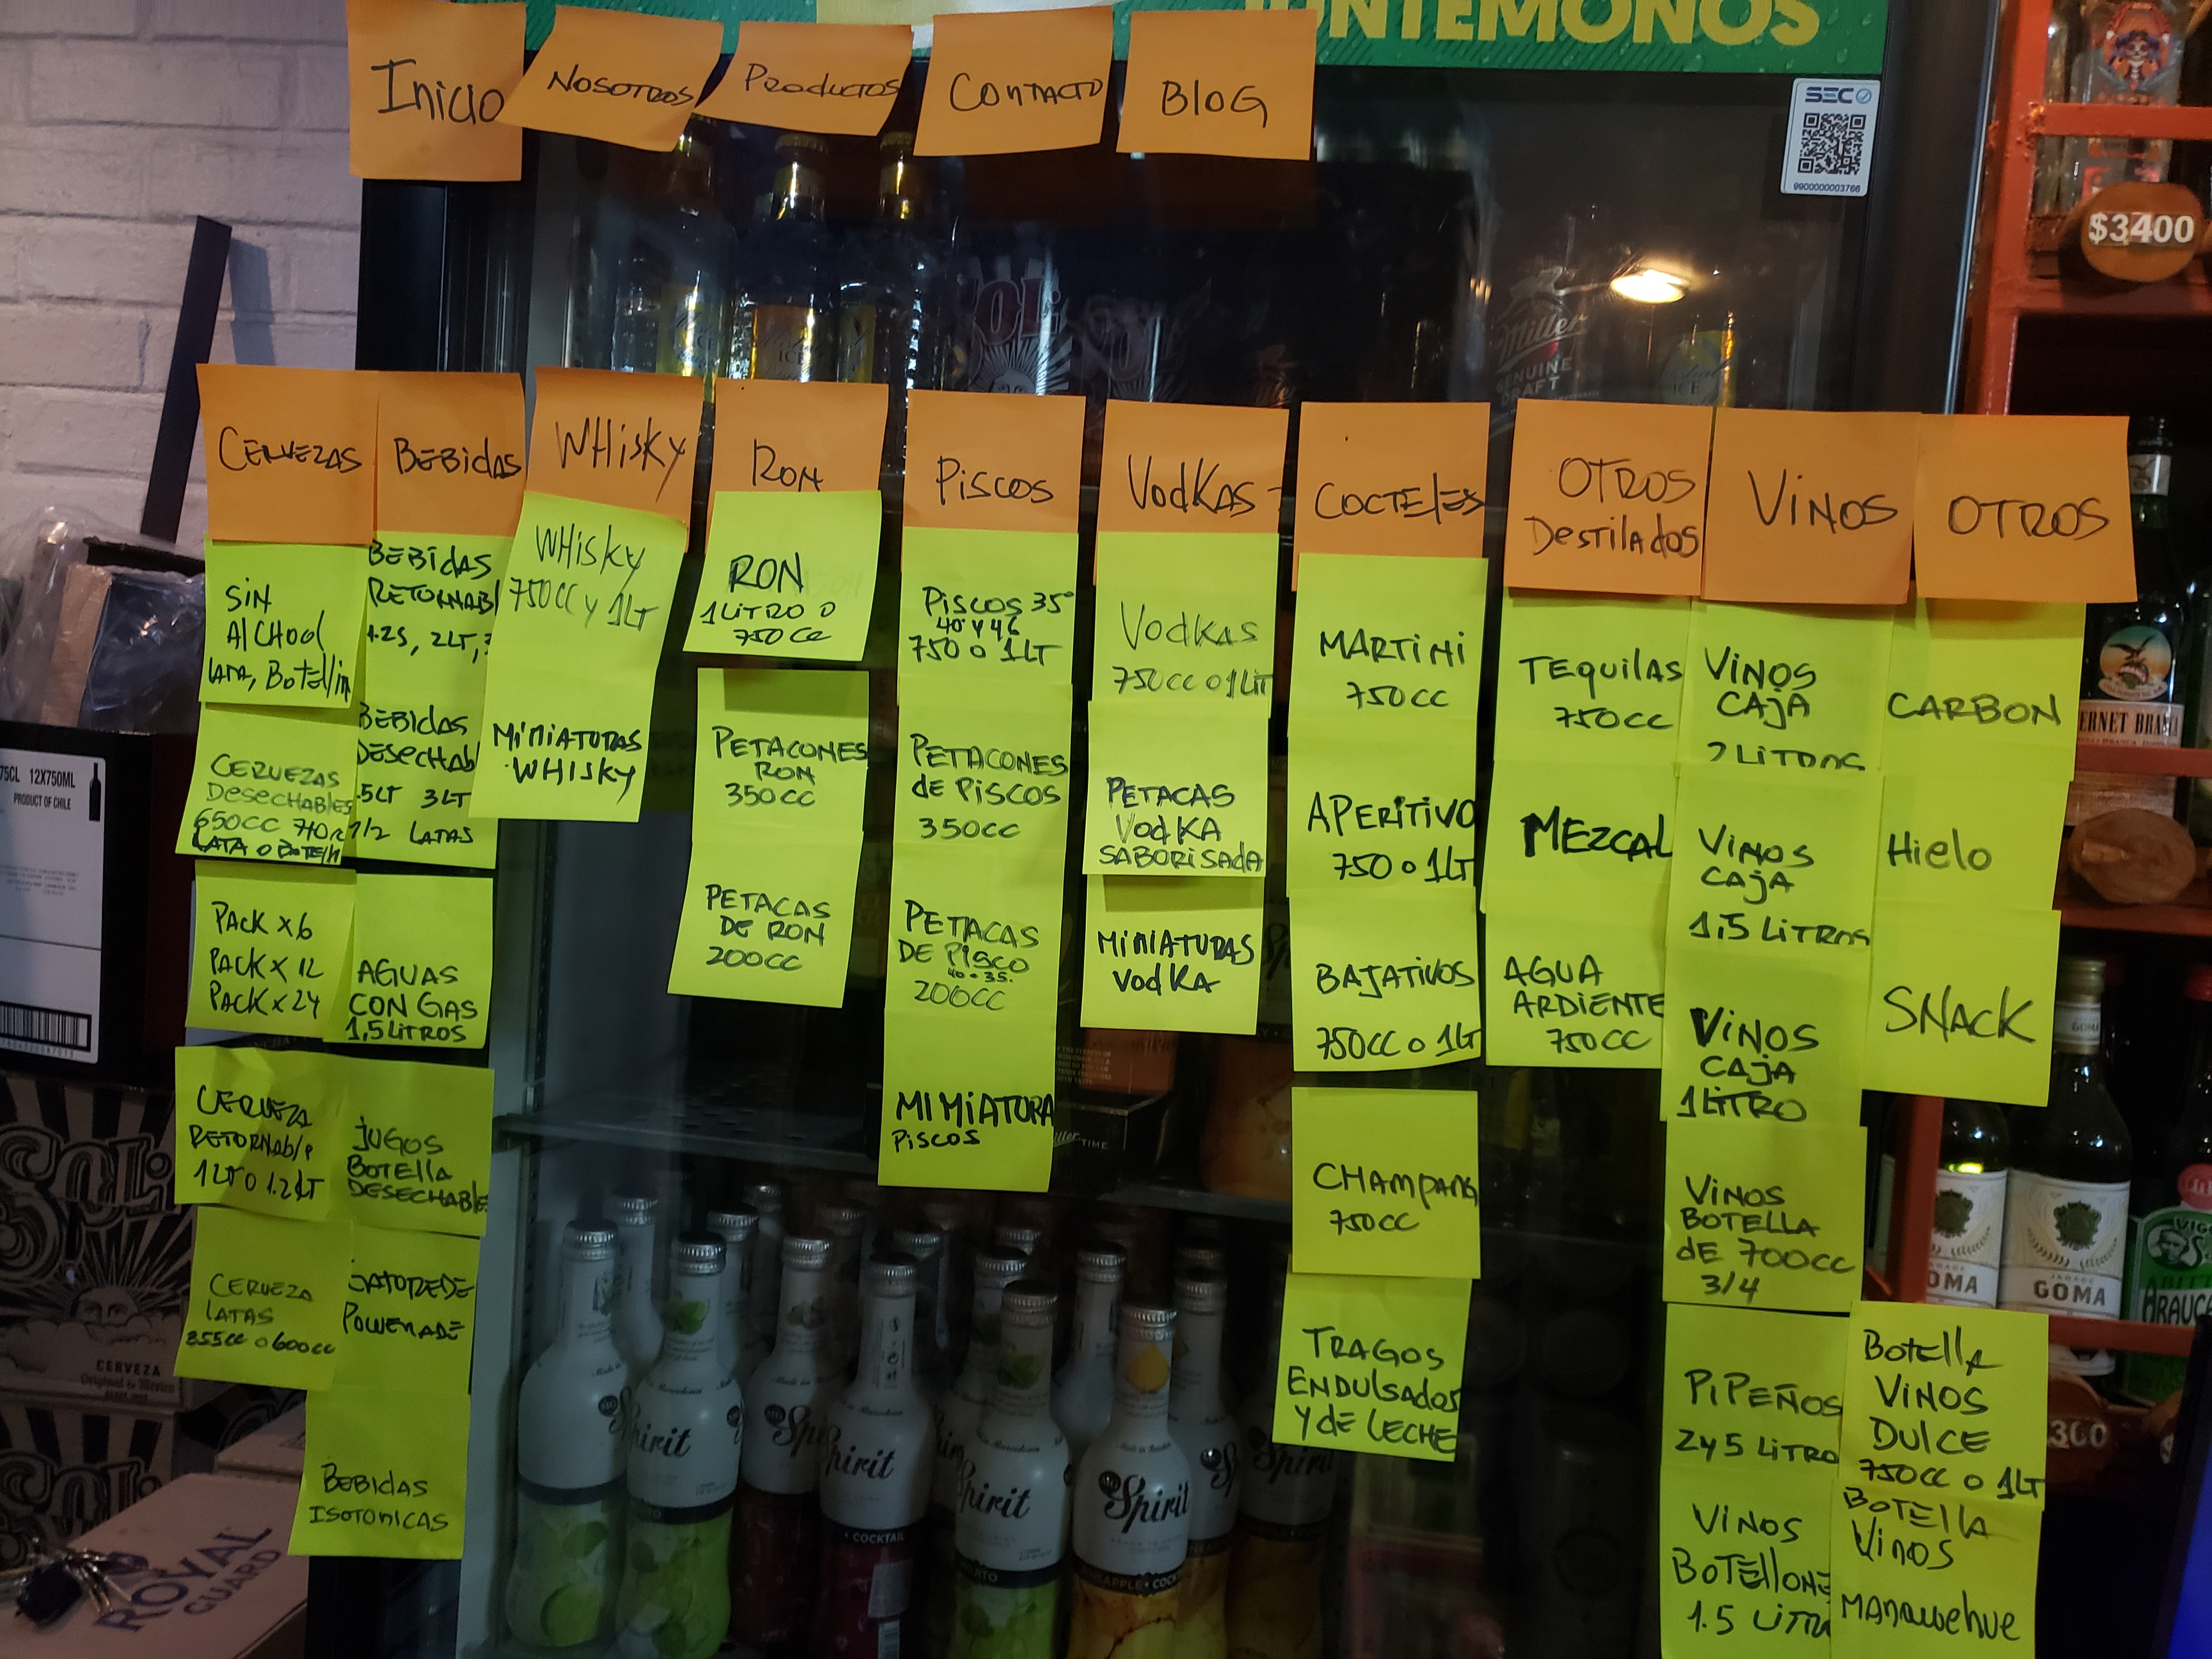 JUNTÉMONOS
Inicio
Nosotros
Productos
Contacto
Blog
SEC
9900000003766
$3400
Cervezas
Bebidas
Whisky
Ron
Piscos
Vodkas
Cocteles
Otros
Destilados
Vinos
Otros
Sin
Alchool
Lata, Botellin
Cervezas
Desechables
650cc 710cc
Lata o Botella
Pack x6
Pack x 12
Pack x 24
Cerveza
Retornable
1LT o 1.2LT
Cerveza
Latas
355cc o 600cc
Bebidas
Retornabl
1.25, 2LT,
Bebidas
Desechab
.5LT 3LT
1/2 Latas
Aguas
con gas
1,5 Litros
Jugos
Botella
Desechable
Gatorede
Powerade
Bebidas
Isotonicas
Whisky
750cc y 1LT
Miniaturas
Whisky
Ron
1 Litro o
750cc
Petacones
Ron
350cc
Petacas
de Ron
200cc
Piscos 35°
40° y 46
750 o 1LT
Petacones
de Piscos
350cc
Petacas
de Pisco
40 o 35.
200cc
Miniatura
Piscos
Vodkas
750cc o 1Lit
Petacas
Vodka
Saborisada
Miniaturas
Vodka
Martini
750cc
Aperitivo
750 o 1LT
Bajativos
750cc o 1LT
Champang
750cc
Tragos
Endulsados
y de Leche
Tequilas
750cc
Mezcal
Agua
Ardiente
750cc
Vinos
Caja
2 Litros
Vinos
Caja
1,5 Litros
Vinos
Caja
1 Litro
Vinos
Botella
de 700cc
3/4
Pipeños
2 y 5 Litro
Vinos
Botellone
1.5 Litro
Carbon
Hielo
Snack
Botella
Vinos
Dulce
750cc o 1LT
Botella
Vinos
Manquehue
75CL 12X750ML
PRODUCT OF CHILE
Sol
CERVEZA
Original de México
ROYAL
GUARD
Sol
Miller
GENUINE
DRAFT
ICE
ICE
ICE
Miller TIME
Spirit
Spirit
Spirit
Spirit
Spirit
COCKTAIL
ERNET BRAN
GOMA
GOMA
ARAUCA